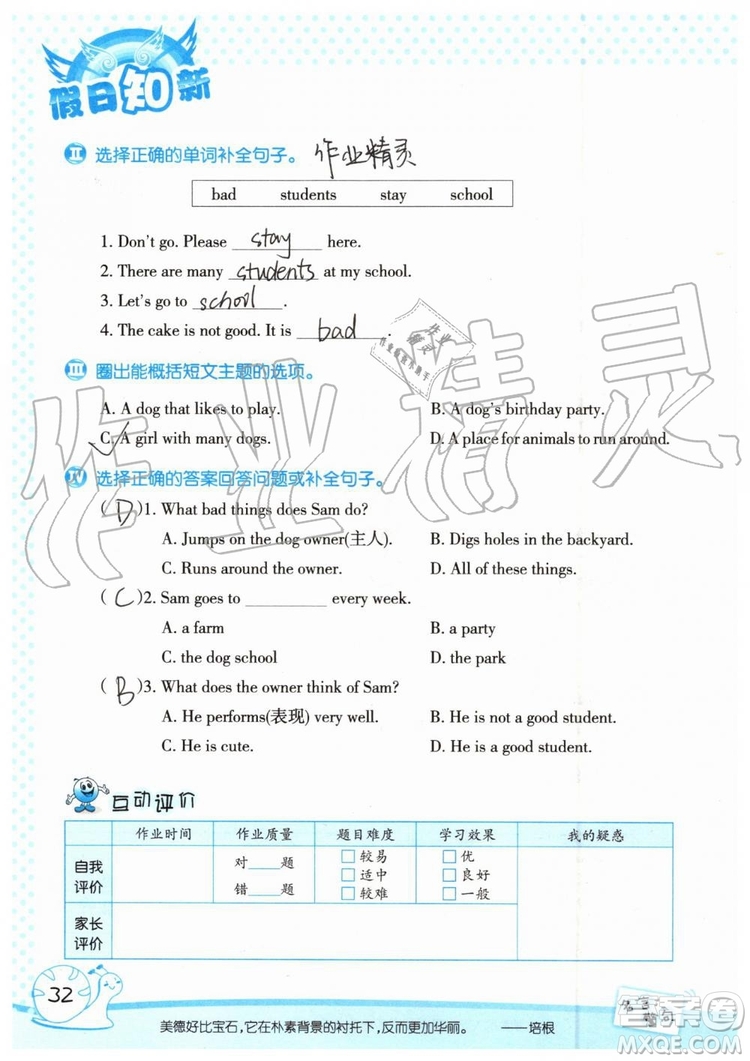 假日知新
II 选择正确的单词补全句子。 作业精灵
bad students stay school
1. Don't go. Please stay here.
2. There are many students at my school.
3. Let's go to school.
4. The cake is not good. It is bad.
III 圈出能概括短文主题的选项。
A. A dog that likes to play. B. A dog's birthday party.
C. A girl with many dogs. D. A place for animals to run around.
IV 选择正确的答案回答问题或补全句子。
( D )1. What bad things does Sam do?
A. Jumps on the dog owner(主人). B. Digs holes in the backyard.
C. Runs around the owner. D. All of these things.
( C )2. Sam goes to ________ every week.
A. a farm B. a party
C. the dog school D. the park
( B )3. What does the owner think of Sam?
A. He performs(表现) very well. B. He is not a good student.
C. He is cute. D. He is a good student.
互动评价
作业时间 作业质量 题目难度 学习效果 我的疑惑
自我评价 对____题 □较易 □优
错____题 □适中 □良好
□较难 □一般
家长评价
32
美德好比宝石,它在朴素背景的衬托下,反而更加华丽。 ——培根
作业精灵
答案圈
MXQE.COM